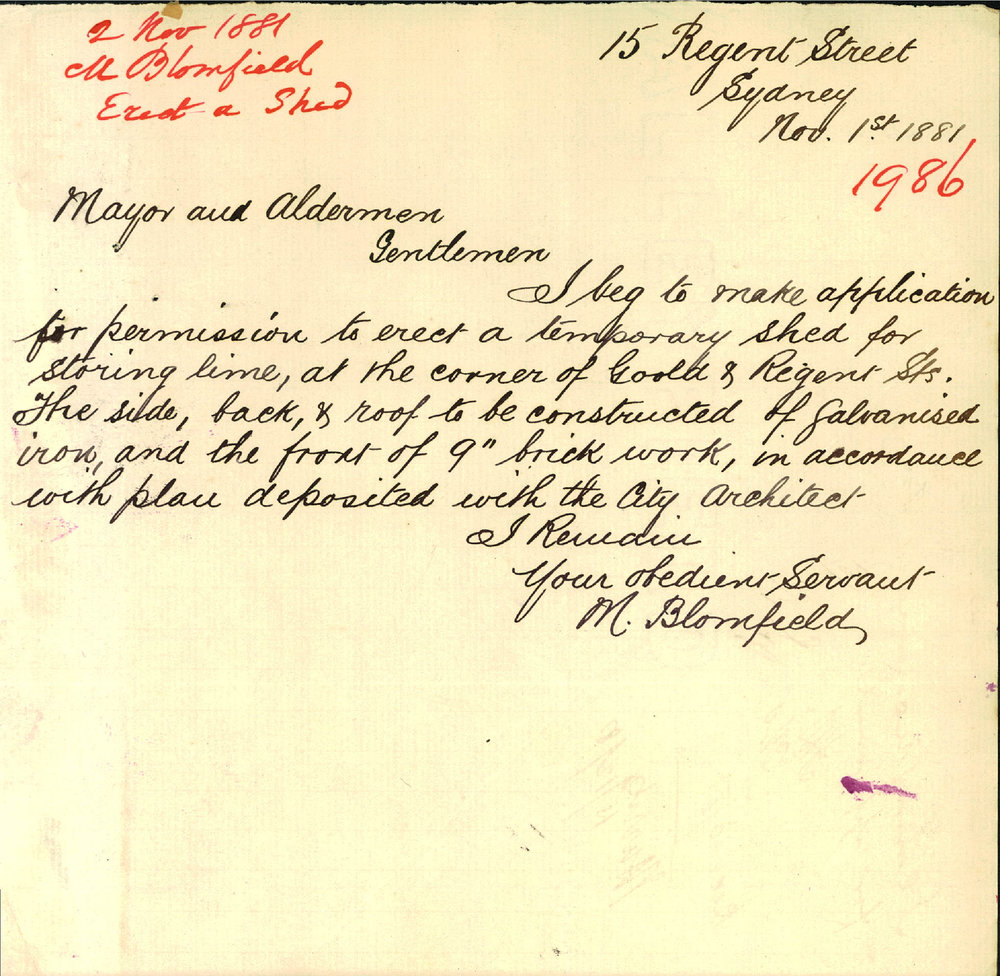 2 Nov 1881
M Blomfield
Erect a Shed
15 Regent Street
Sydney
Nov. 1st 1881
1986
Mayor and Aldermen
Gentlemen
I beg to make application
for permission to erect a temporary shed for
storing lime, at the corner of Goold & Regent Sts.
The side, back, & roof to be constructed of Galvanised
iron, and the front of 9" brick work, in accordance
with plan deposited with the City Architect
I Remain
Your obedient Servant
M. Blomfield